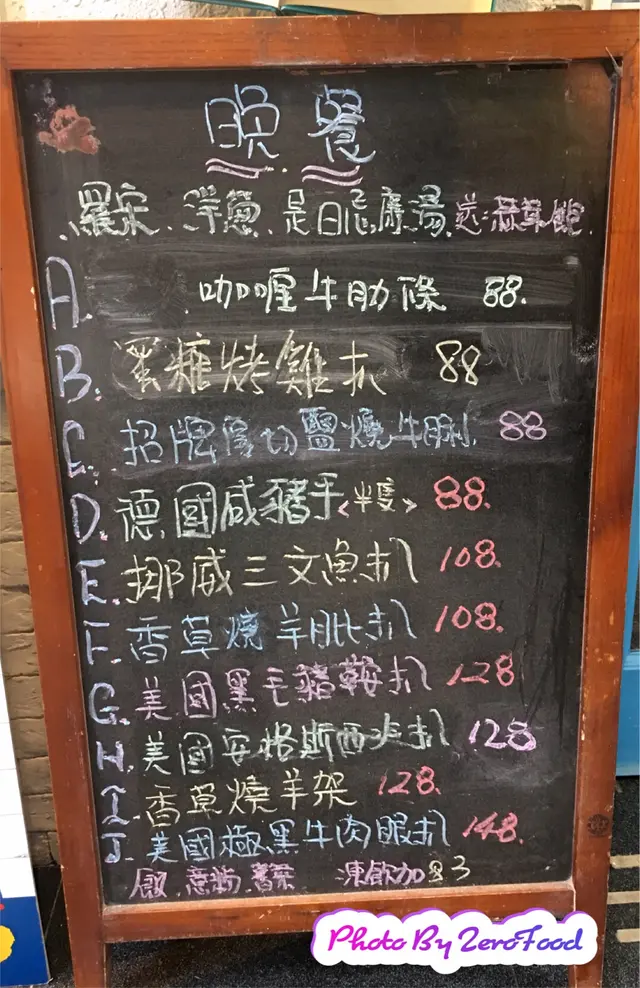 晚餐
羅宋.洋蔥.是日忌廉湯送:蒜茸飽.
A. 咖喱牛肋條 88.
B. 蜜糖烤雞扒 88
C. 招牌厚切鹽燒牛脷 88
D. 德國咸豬手<半隻> 88.
E. 挪威三文魚扒 108.
F. 香草燒羊肶扒 108.
G. 美國黑毛豬鞍扒 128
H. 美國安格斯西冷扒 128
I. 香草燒羊架 128.
J. 美國極黑牛肉眼扒 148.
飯.意粉.薯菜 凍飲加$3
Photo By ZeroFood